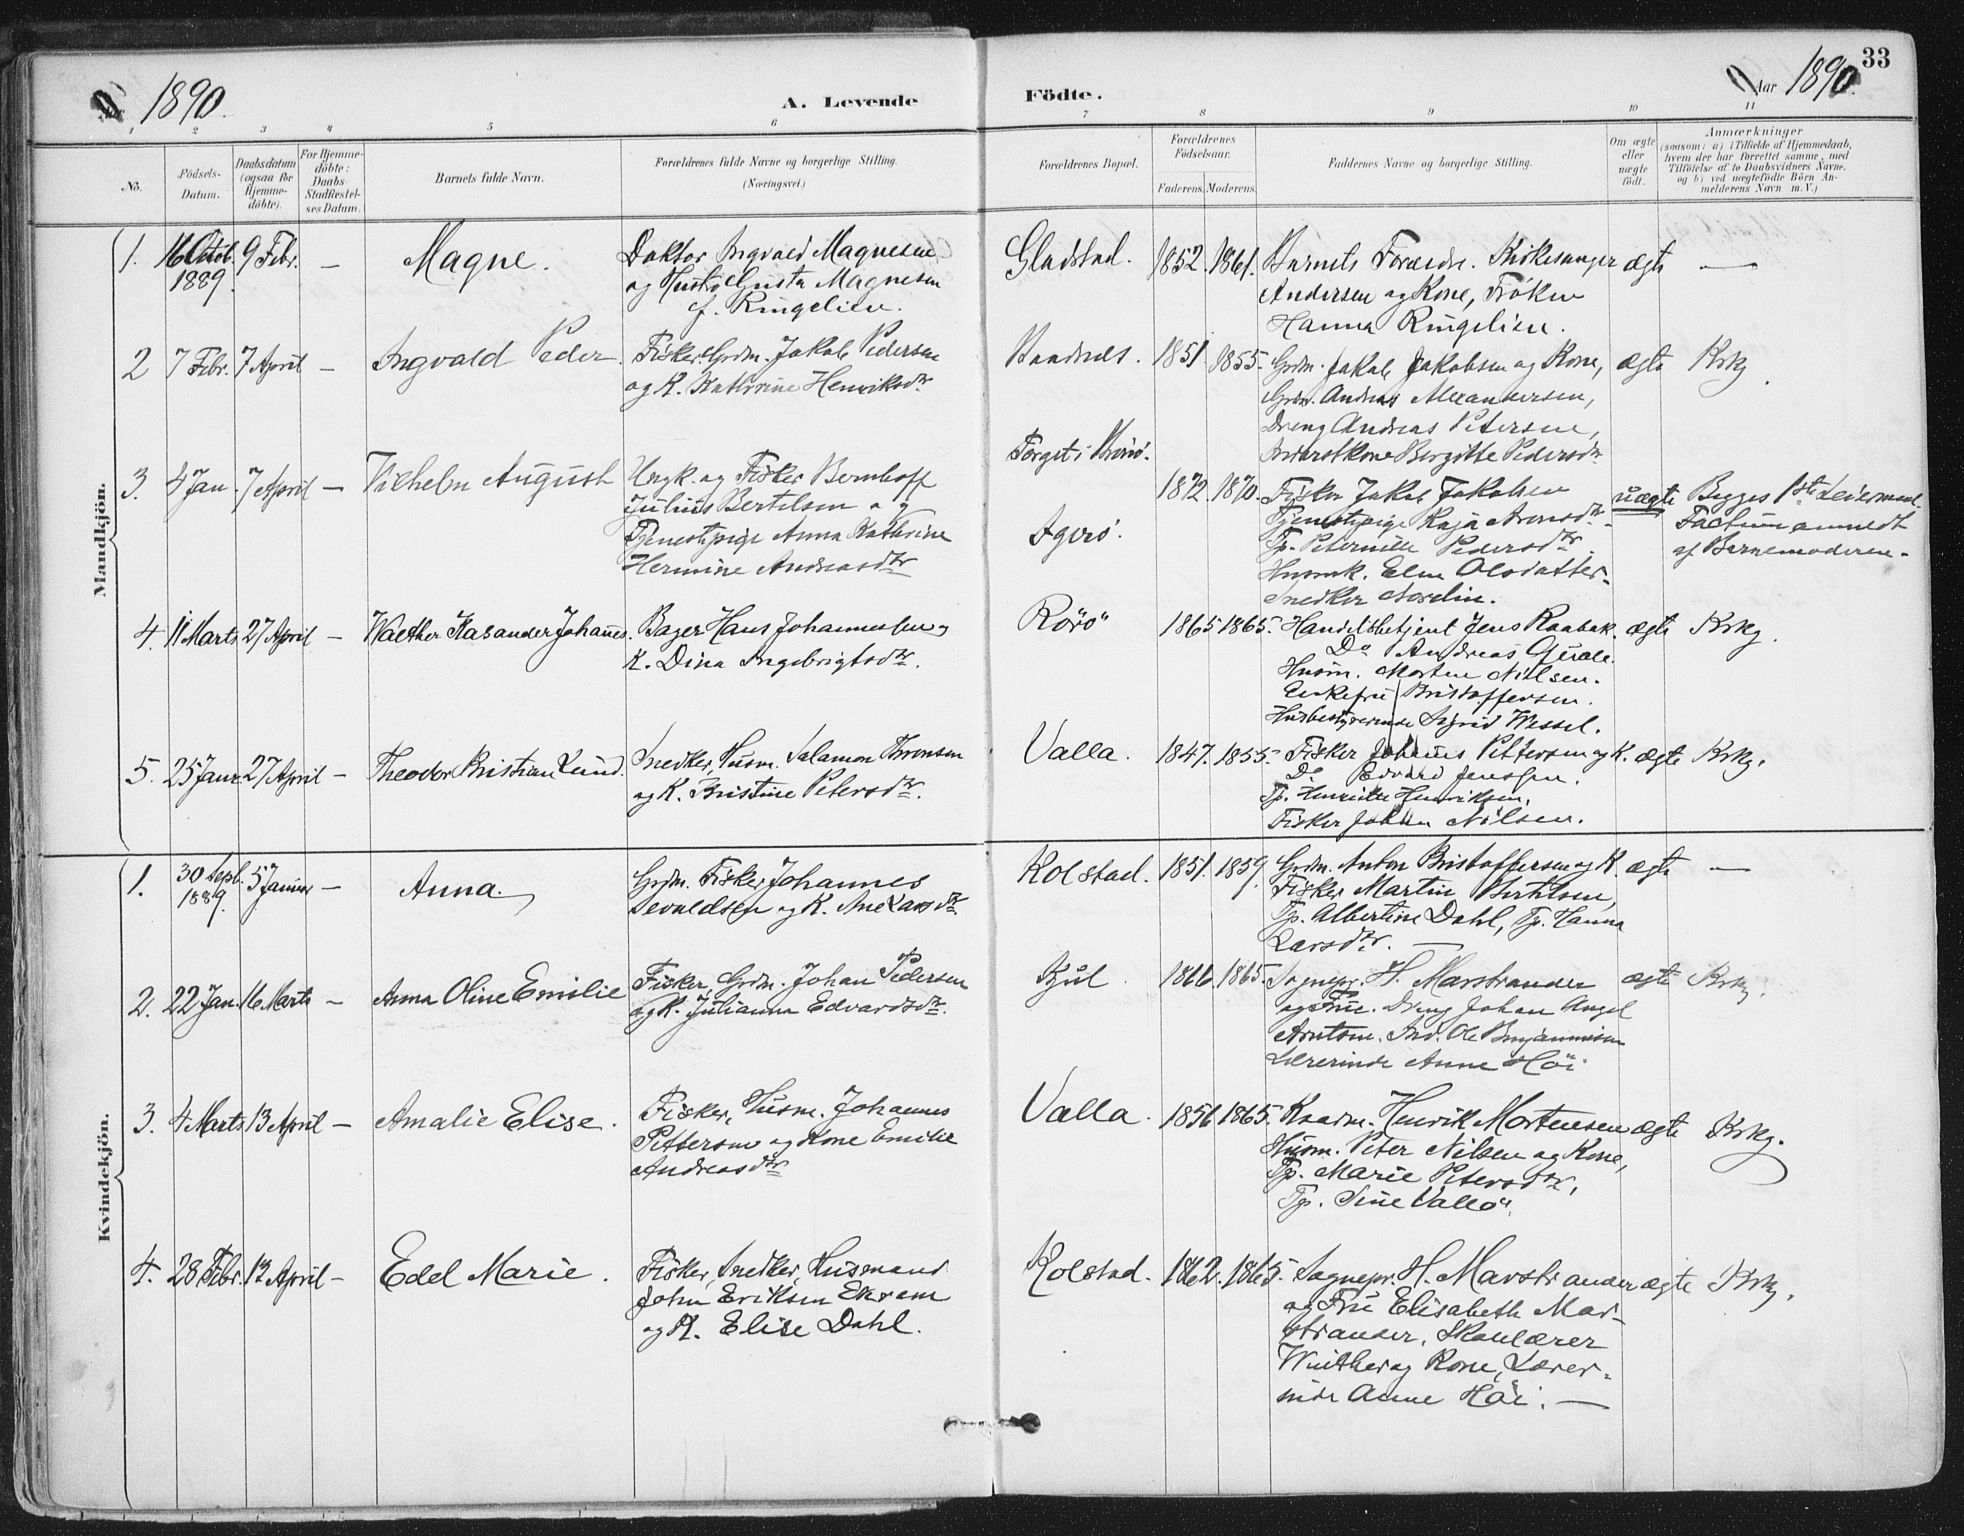 33
1890.
A. Levende
Födte.
Aar 1890.
1 2 3 4 5 6 7 8 9 10 11
No.
Födsels-Datum.
Daabsdatum (ogsaa for Hjemmedöbte).
For Hjemmedöbte: Daabs-Stadfæstelses Datum.
Barnets fulde Navn.
Forældrenes fulde Navne og borgerlige Stilling.
(Næringsvei.)
Forældrenes Bopæl.
Forældrenes Födselsaar.
Faderens. Moderens.
Faddernes Navne og borgerlige Stilling.
Om ægte eller uægte födt.
Anmærkninger
(saasom: a) i Tilfælde af Hjemmedaab,
hvem der har forrettet samme, med
Tilföielse af to Daabsvidners Navne.
og b) ved uægtefödte Börn Anmelderens Navn m. V.)
Mandkjön.
1. 16 Octob. 1889. 9 Febr. — Magne.
Doktor Ingvald Magnesen
og Hustr Gusta Magnesen
f. Ringelien.
Gladstad. 1852. 1861.
Barnets Forældre. Kirkesanger
Andersen og Kone, Frøken
Hanna Ringelien.
ægte —
2 7 Febr. 7 April — Ingvald Peder.
Fisker, Grdm. Jakob Pedersen
og K. Kathrine Henriksdtr
1851. 1855.
Grdm. Jakob Jakobsen og Kone,
Grdm. Andreas Alexandersen,
Dreng Andreas Petersen,
Birgitte Pedersdtr
ægte Krkg.
3. 4 Jan. 7 April — Vilhelm August
Ungk. og Fisker Bernhoff
Julius Bertelsen og
Tjenestepige Anna Kathrine
Hermine Andreasdtr
Torget i Brönö.
1872. 1870.
Fisker Jakob Jakobsen
Tjenestepige Kaja Aronsdtr
Tp. Peternille Pedersdtr.
Husmk. Elen Olsdatter
Snedker
uægte
Begges 1ste Leiermaal.
Factum anmeldt
af Barnemoderen.
4. 11 Marts 27 April — Walther Kasander Johannes.
Bager Hans Johannessen og
K. Dina Ingebrigtsdtr.
Rörö 1865 1865.
Handelsbetjent Jens Raabak.
Do Andreas Qvale.
Husm. Morten Nilsen.
Enkefru Kristoffersen.
Husbestyrerinde Sigrid Wessel.
ægte Krkg.
5. 25 Janr. 27 April — Theodor Kristian Lund.
Snedker, Husm. Salamon Thronsen
og K. Kristine Petersdtr.
Valla. 1847. 1855.
Fisker Johannes Pettersen og K.
Do Edvard Jenssen.
Tp. Henriette Henriksen.
Fisker Johan Nilsen.
ægte Krkg.
Kvindekjön.
1. 30 Sept. 1889. 5 Januar — Anna.
Grdm. Fisker Johannes
Sevaldsen og K. Ane Larsdtr.
Kolstad. 1851. 1859.
Grdm. Anton Kristoffersen og K.
Fisker Martin Bertelsen,
Tp. Albertine Dahl, Tp. Hanna
Larsdtr. —
ægte —
2. 22 Jan. 16 Marts — Anna Oline Emilie
Fisker, Grdm. Johan Pedersen
og K. Julianna Edvardsdtr.
1866. 1865.
Sognepr. H. Marstrander
og Frue. Dreng Johan Angel
Arntsen. Ole Benjaminsen
Lærerinde Anne Höi
ægte Krkg.
3. 4 Marts 13 April — Amalie Elise.
Fisker, Husm. Johannes
Pettersen og Kone Emilie
Andreasdtr
Valla. 1856 1865.
Kaadm. Henrik Mortensen
Husm. Peter Nilsen og Kone,
Tp. Marie Petersdtr,
Tp. Sine Vallö.
ægte Krkg.
4. 28 Febr. 13 April — Edel Marie.
Fisker, Snedker, Husmand
John Eriksen Ekrem
og K. Elise Dahl.
Kolstad. 1862. 1865.
Sognepr. H. Marstrander
og Frue Elisabeth Mar-
strander, Skolelærer
Winther og Kone, Lærer-
inde Anne Höi. —
ægte Krkg.